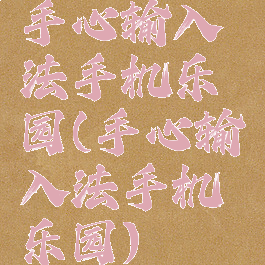 手心输入
法手机乐
园(手心输
入法手机
乐园)